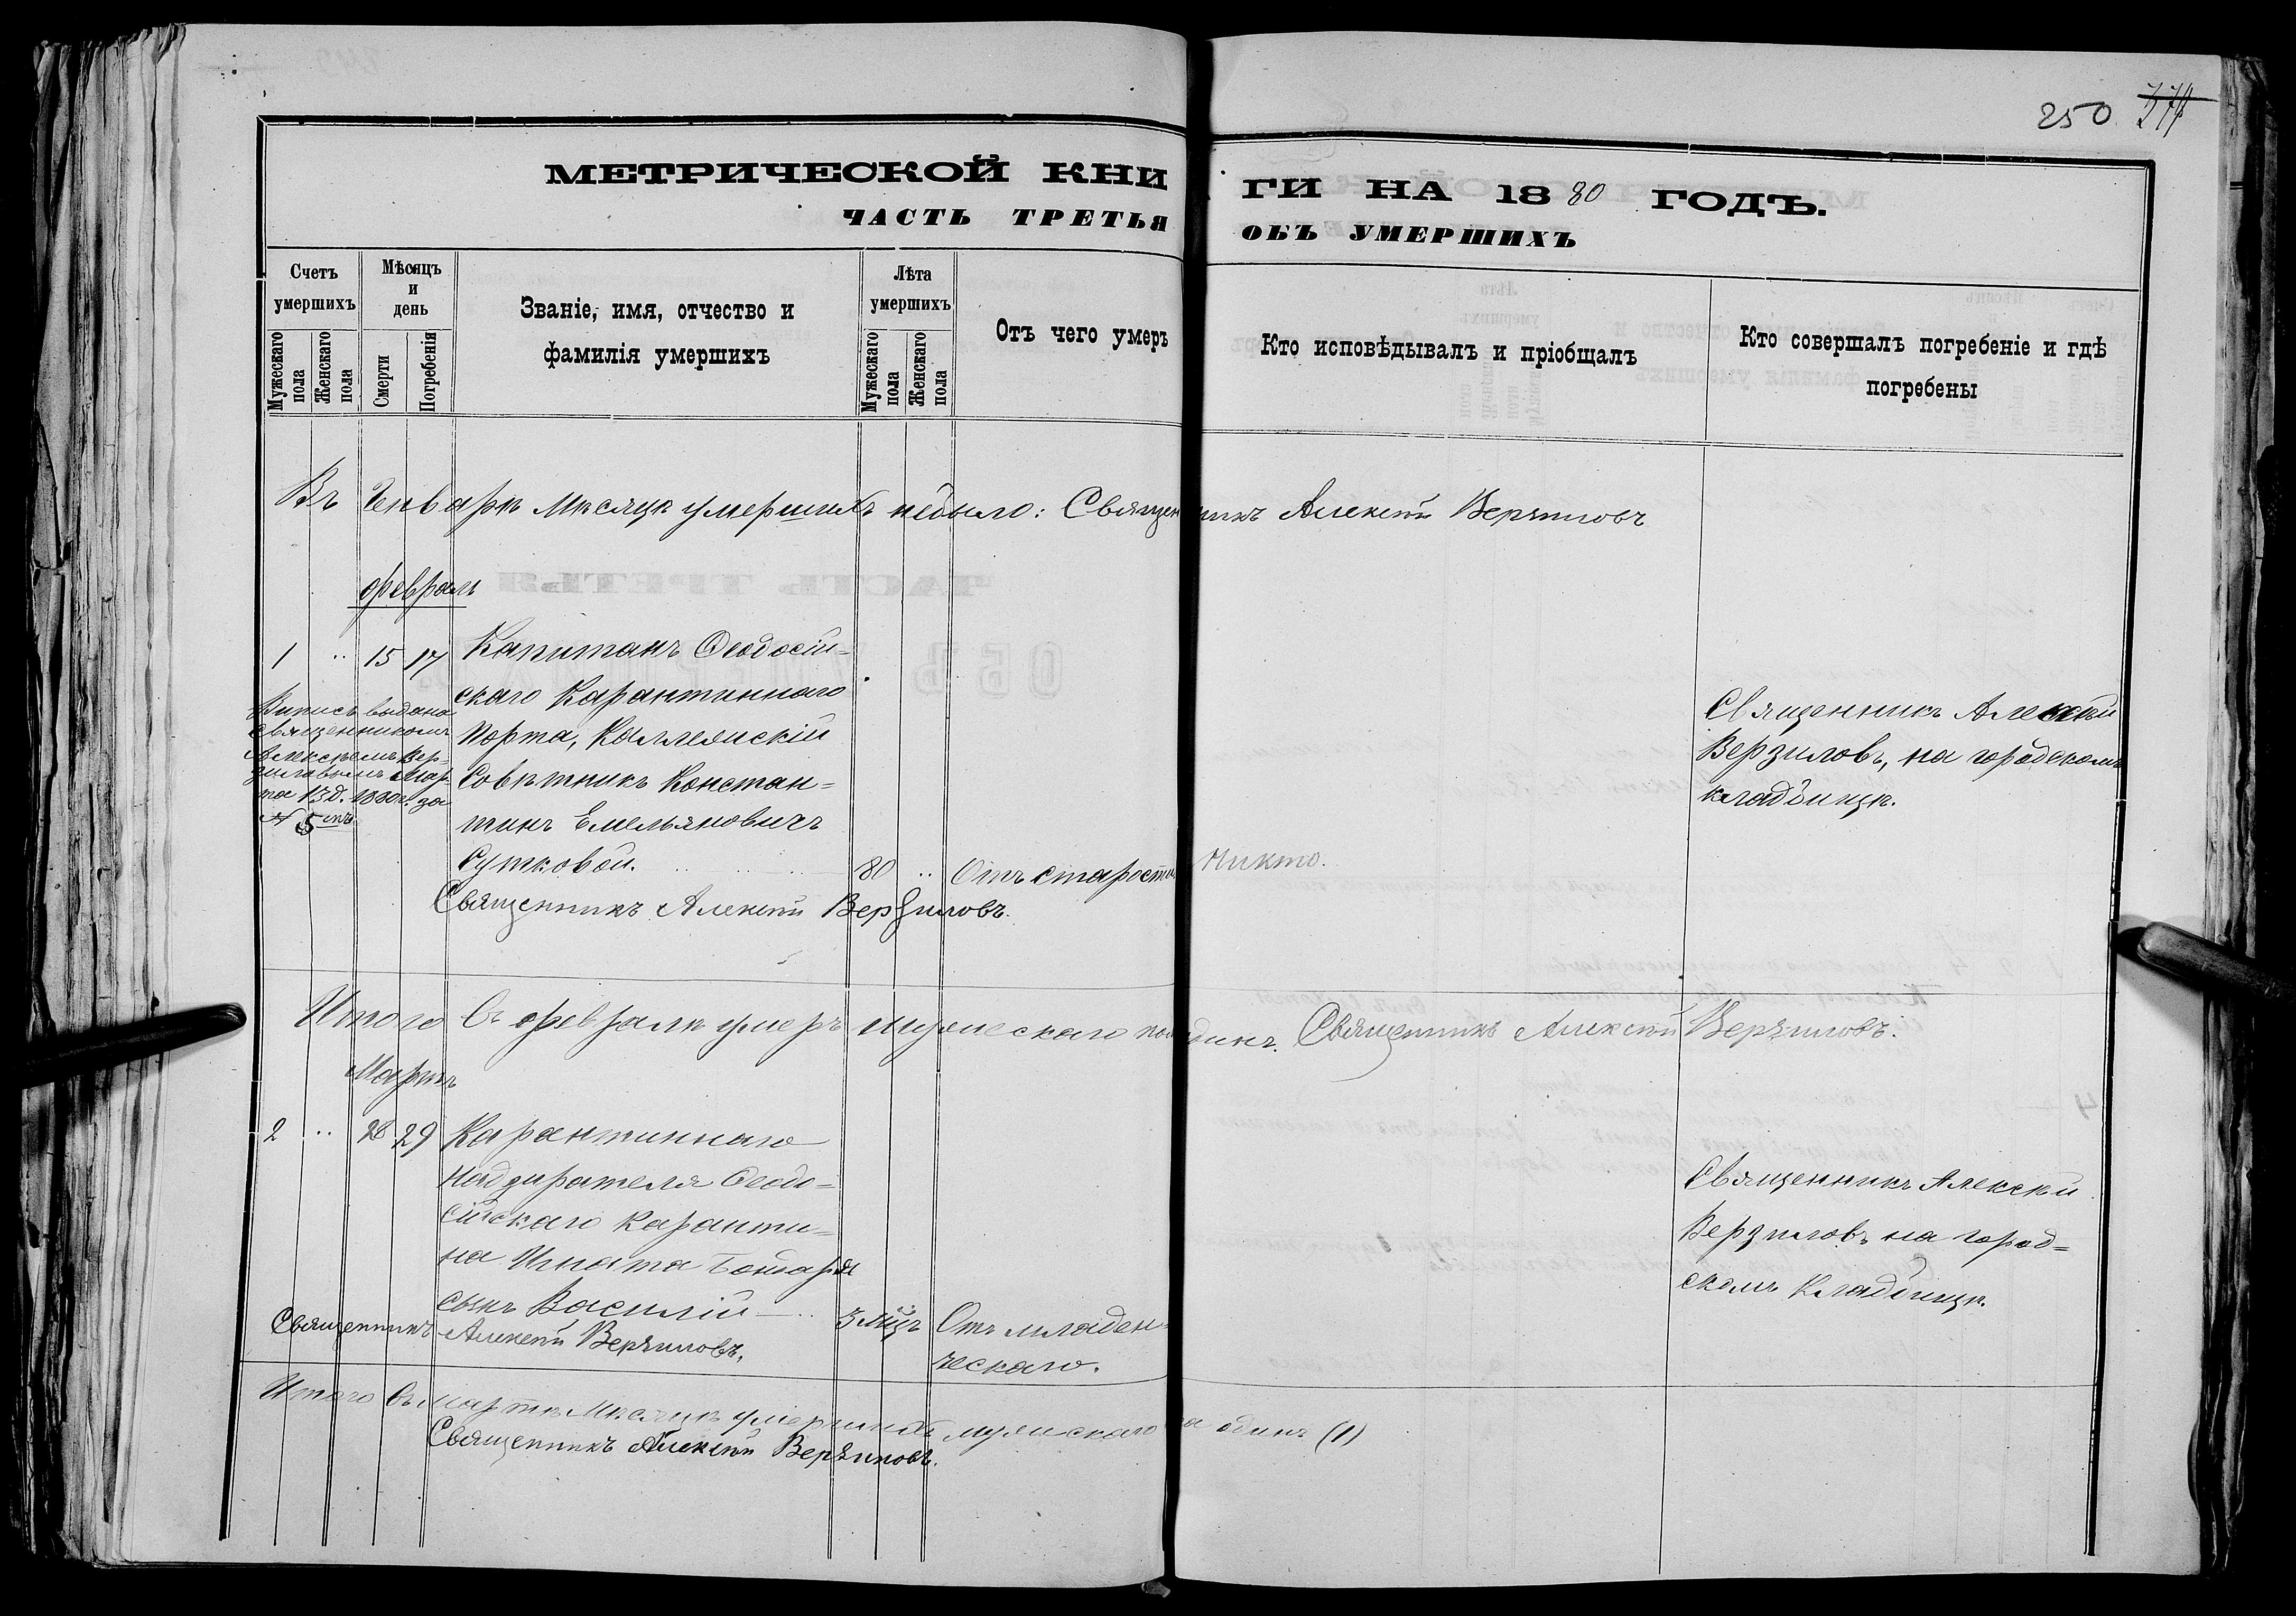 250 374
МЕТРИЧЕСКОЙ КНИГИ НА 1880 ГОДЪ.
ЧАСТЬ ТРЕТЬЯ ОБЪ УМЕРШИХЪ
Счетъ умершихъ
Мужескаго пола
Женскаго пола
Мѣсяцъ и день
Смерти
Погребенія
Званіе, имя, отчество и фамилія умершихъ
Лѣта умершихъ
Мужескаго пола
Женскаго пола
Отъ чего умеръ
Кто исповѣдывалъ и пріобщалъ
Кто совершалъ погребеніе и гдѣ погребены
Въ Генварѣ мѣсяцѣ умершихъ небыло: Священникъ Алексѣй Верзиловъ
февраль
1 " 15 17 Капитанъ Ѳеодосій-
скаго Карантиннаго
порта, Коллежскій
Совѣтникъ Констан-
тинъ Емельяновичъ
Сутковой. 80 " Отъ старости Никто.
Священникъ Алексѣй
Верзиловъ, на городскомъ
кладбищѣ.
Выпись выдана
священникомъ
Алексѣемъ Вер-
зиловымъ Мар-
та 13 д. 1880 г. за
№ 5мъ
Священникъ Алексѣй Верзиловъ.
Итого въ февралѣ умеръ мужескаго пола одинъ. Священникъ Алексѣй Верзиловъ.
Мартъ
2 " 28 29 Карантиннаго
надзирателя Ѳеодо-
сійскаго Каранти-
на Игната Бондаря
сынъ Василій 3 мѣц Отъ младен-
ческаго.
Священникъ Алексѣй
Верзиловъ на город-
скомъ Кладбищѣ.
Священникъ Алексѣй Верзиловъ.
Итого въ мартѣ мѣсяцѣ умершихъ мужескаго пола одинъ (1)
Священникъ Алексѣй Верзиловъ.